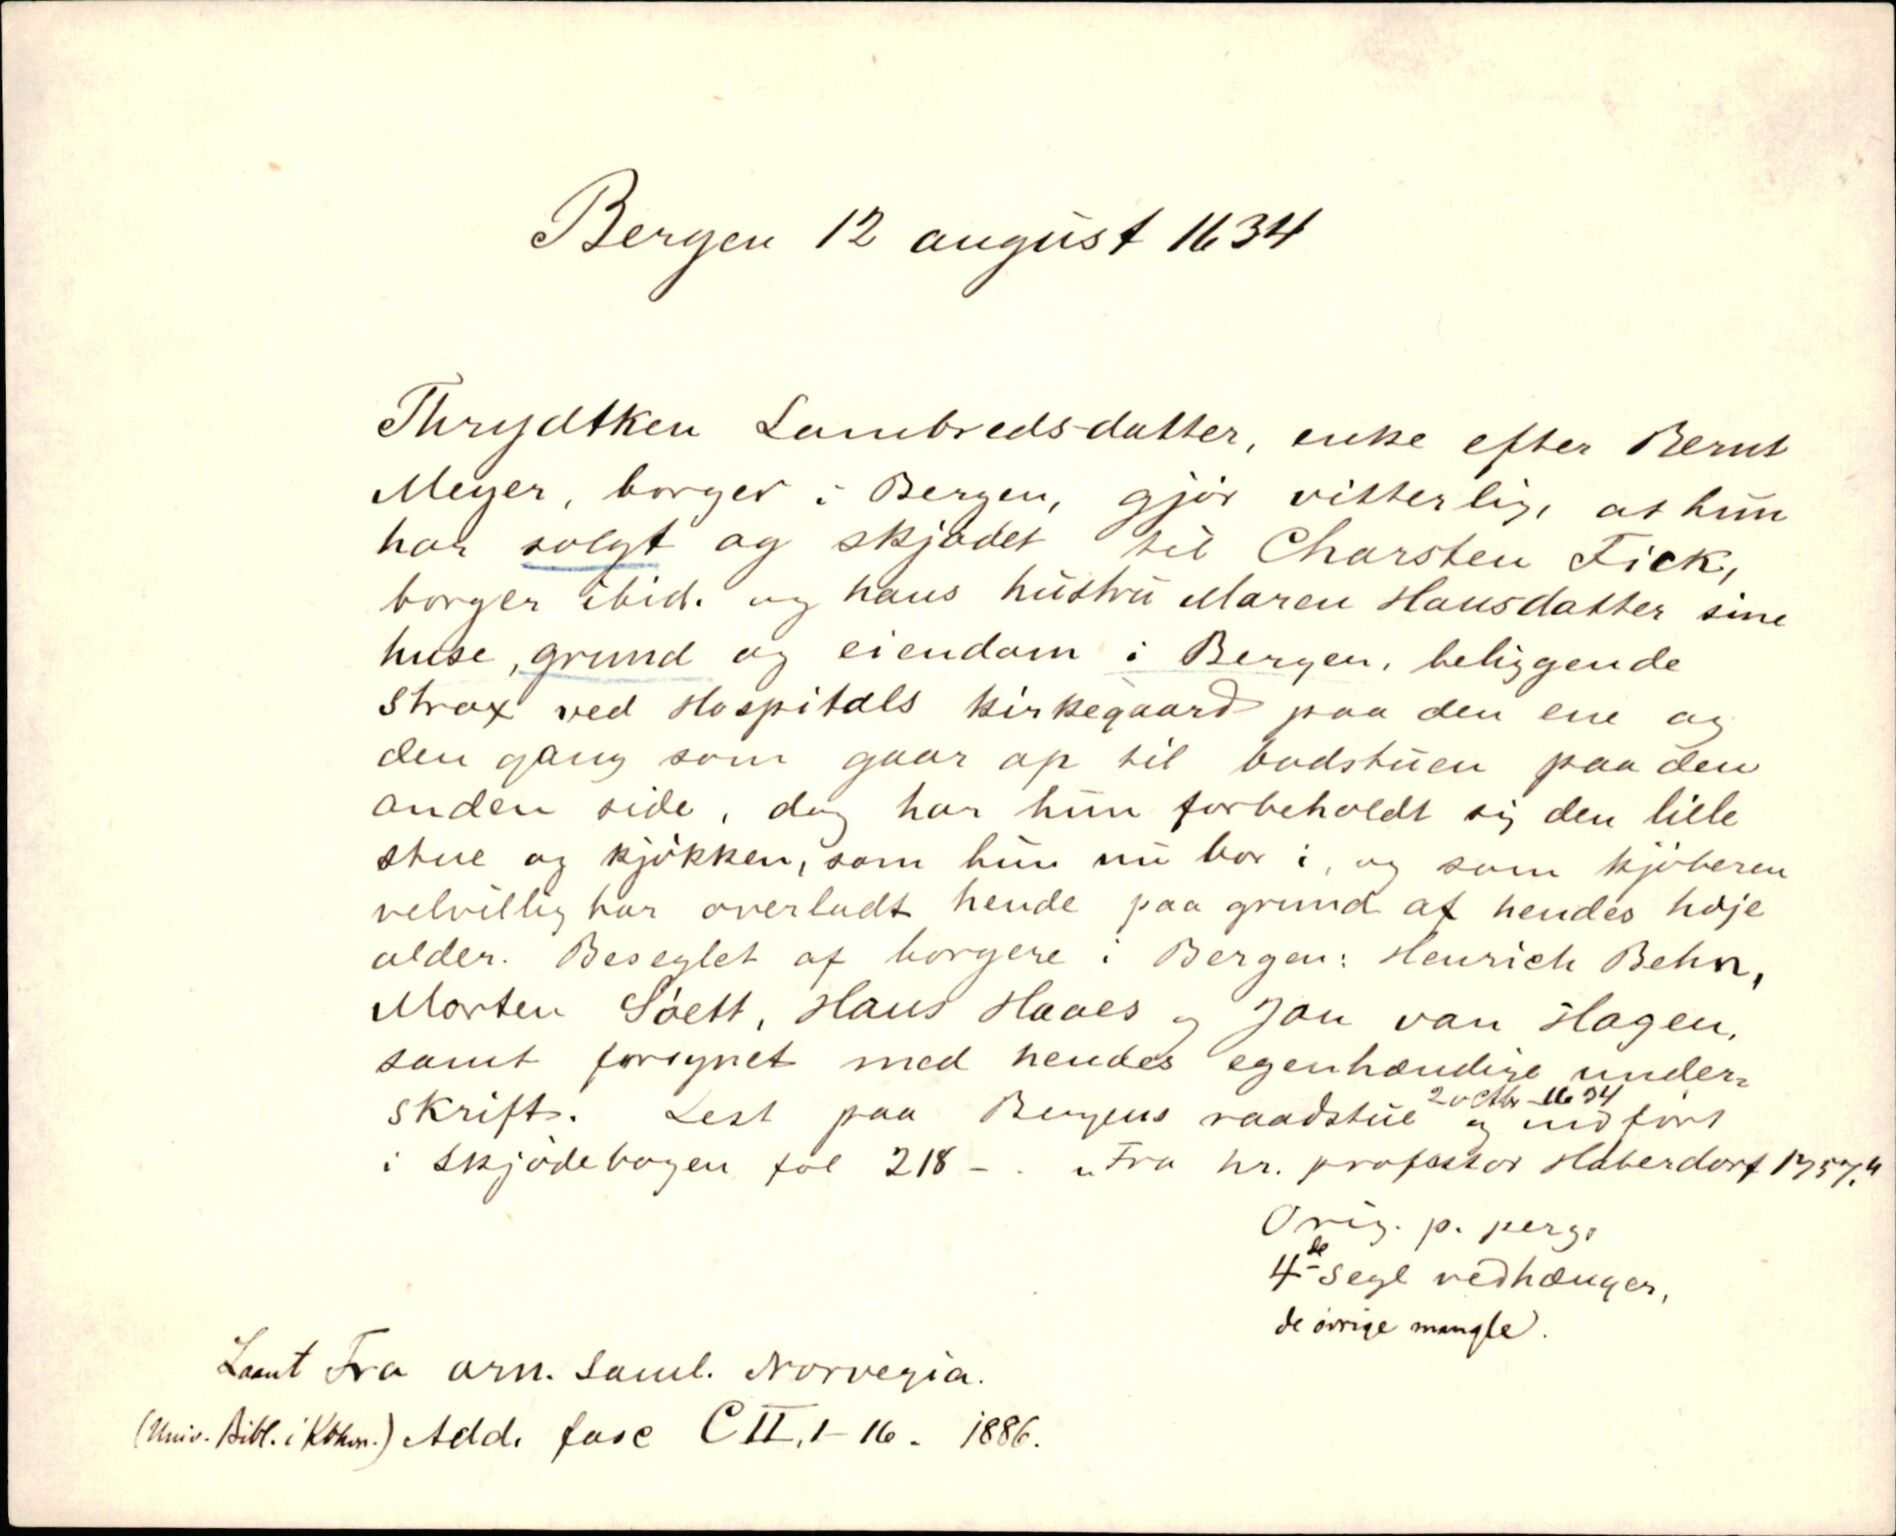 Bergen 12 august 1634
Thrydtken Lambredsdatter, enke efter Bernt
Meyer, borger i Bergen, gjör vitterlig, at hun
har solgt og skjødet til Charsten Fick,
borger ibid. og hans hustru Maren Hansdatter sine
huse, grund og eiendom i Bergen, beliggende
strax ved Hospitals kirkegaard paa den ene og
den gang som gaar op til badstuen paa den
anden side, dog har hun forbeholdt sig den lille
stue og kjøkken, som hun nu bor i, og som kjøberen
velvillig har overladt hende paa grund af hendes høje
alder. Beseglet af borgere i Bergen: Henrich Behn,
Morten Söett, Hans Haaes og Jan van Hagen,
samt forsynet med hendes egenhændige under-
skrift. Lest paa Bergens raadstue 2 octbr 1634 og indført
i skjødebogen fol 218 - . "Fra hr. professor Haberdorf 1757."
Orig. p. perg.
4de segl vedhænger,
de øvrige mangle.
Laant Fra arn. saml. Norvegia.
(Univ. Bibl. i Kbhvn.) Add. fasc CII, 1-16. 1886.